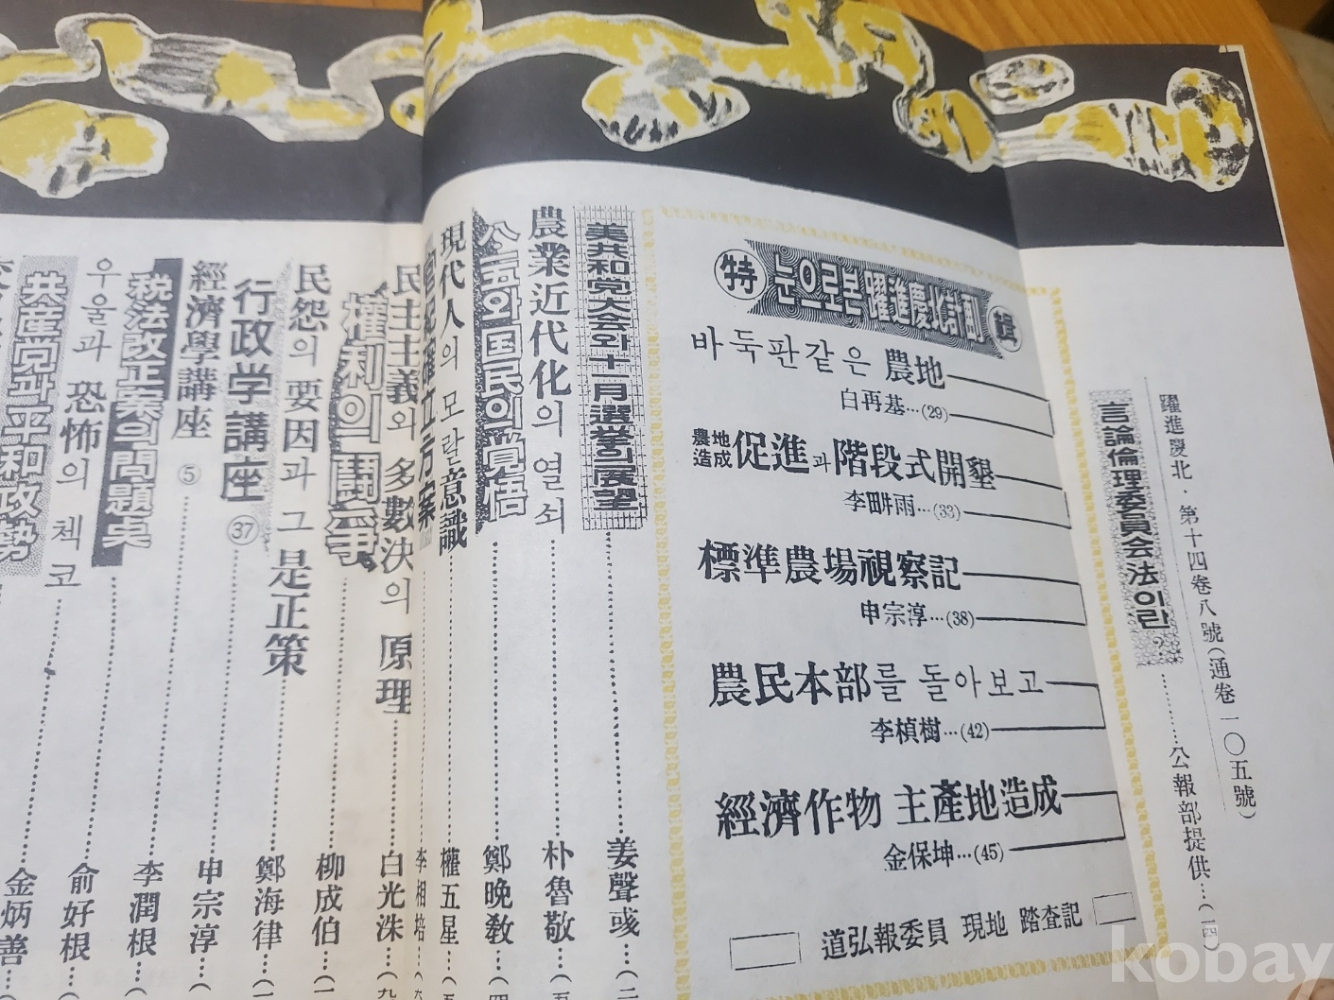 躍進慶北·第十四卷八號(通卷一〇五號)
言論倫理委員会法이란?………公報部提供…(一四)
特 눈으로본 躍進慶北計劃 輯
바둑판같은 農地
白再基…(29)
農地造成 促進과 階段式開墾
李畊雨…(33)
標準農場視察記
申宗淳…(38)
農民本部를 돌아보고
李楨樹…(42)
經濟作物 主產地造成
金保坤…(45)
道弘報委員 現地 踏査記
美共和党大会와 十一月選挙의 展望………姜聲彧…(二
農業近代化의 열쇠………朴魯敬…(五
八·一五와 国民의 覚悟………鄭晩敎…(四
現代人의 모랄意識………權五星…(五
立方案………李相培…(六
民主主義와 多數決의 原理………白光洙…(九
權利의 鬪爭………柳成伯…(一
民怨의 要因과 그 是正策………鄭海律…(一
行政学講座 ㊲………申宗淳…(
經濟學講座 ⑤
税法改正案의 問題点………李潤根…(
우울과 恐怖의 체코………兪好根…(
共産党과 平和攻勢………金炳善…(
kobay